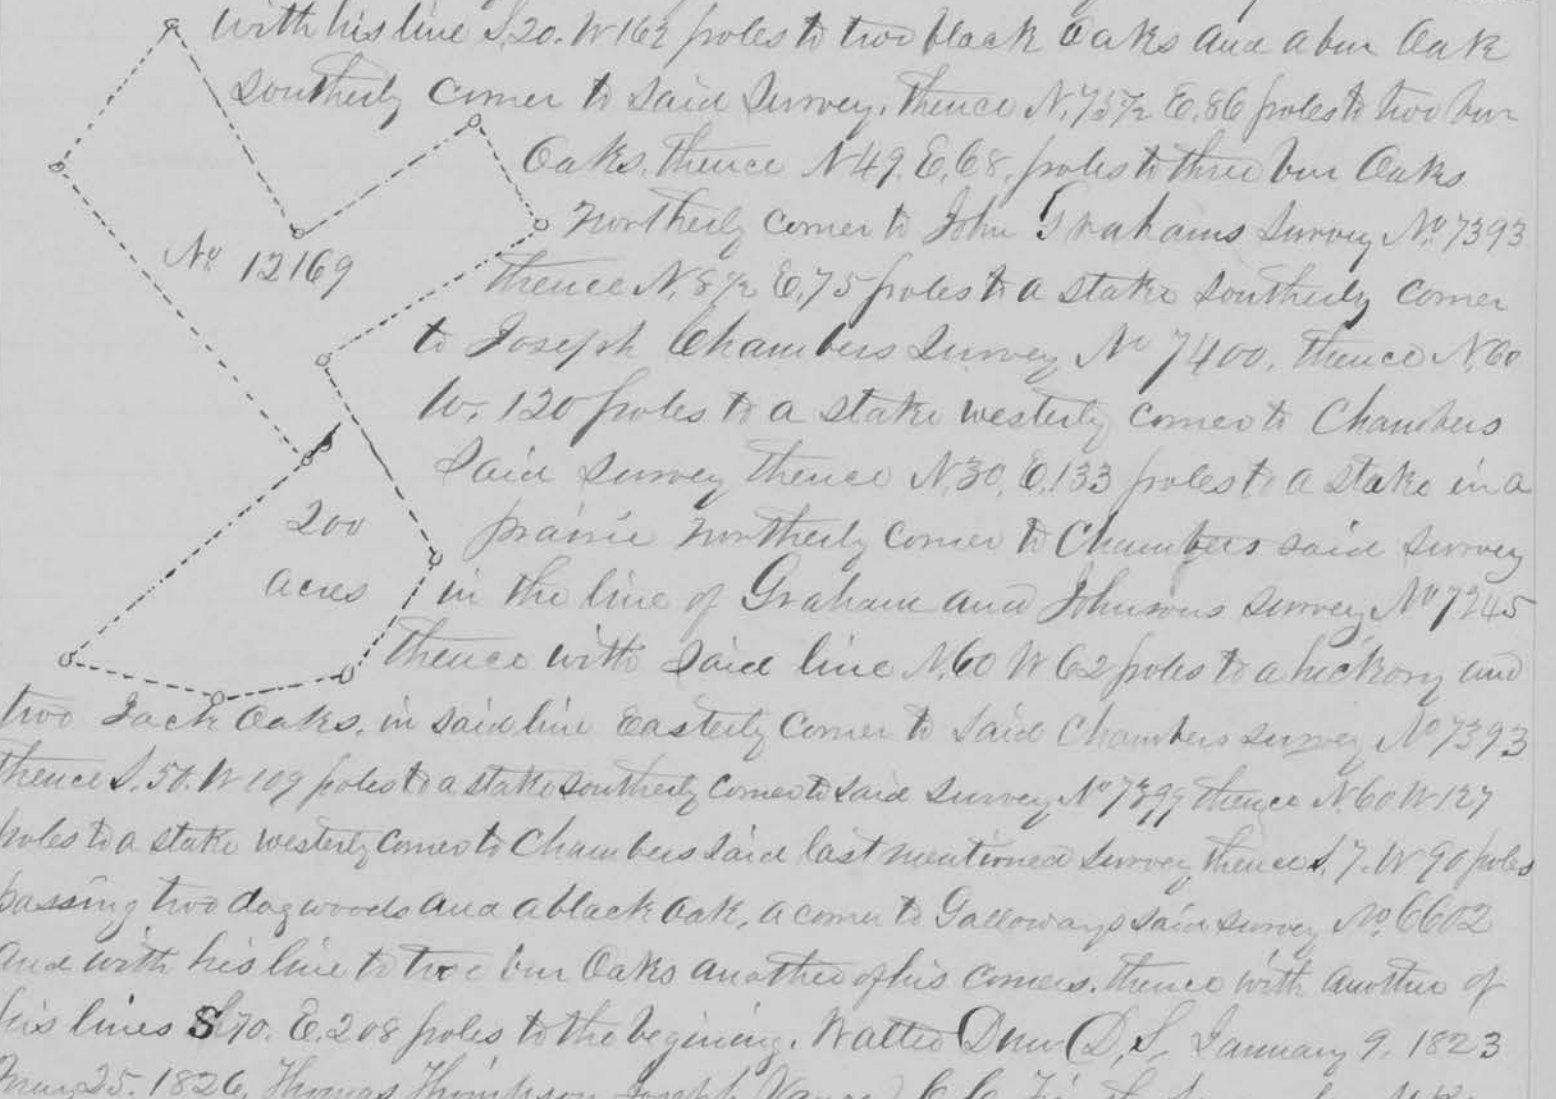 with his line S,20. W 162 poles to two black Oaks and a bur Oak
Southerly corner to said Survey. thence N,73½ E,86 poles to two bur
Oaks. thence N 49. E,68. poles to three bur Oaks
Northerly corner to John Grahams Survey No 7393
thence N,8½ E,75 poles to a stake Southerly corner
to Joseph Chambers Survey No 7400. thence N,60
W. 120 poles to a stake westerly corner to Chambers
said survey thence N,30, E,133 poles to a stake in a
prairie Northerly corner to Chambers said survey
in the line of Graham and Johnsons survey No 7245
thence with said line N,60 W 62 poles to a hickory and
two Jack Oaks, in said line Easterly corner to said Chambers survey No 7393
thence S. 50. W 109 poles to a stake southerly corner to said survey thence N.60 W 127
poles to a stake westerly corner to Chambers said last mentioned Survey, thence S. 7. W 90 poles
passing two dogwoods and a black Oak, a corner to Galloways said survey No. 6602
and with his line to bur Oaks another of his corners. thence with another of
his lines S 70. E. 208 poles to the begining. Walter Dun (D,S, January 9. 1823
25. 1826, Thomas Thompson Joseph
No 12169
200
acres